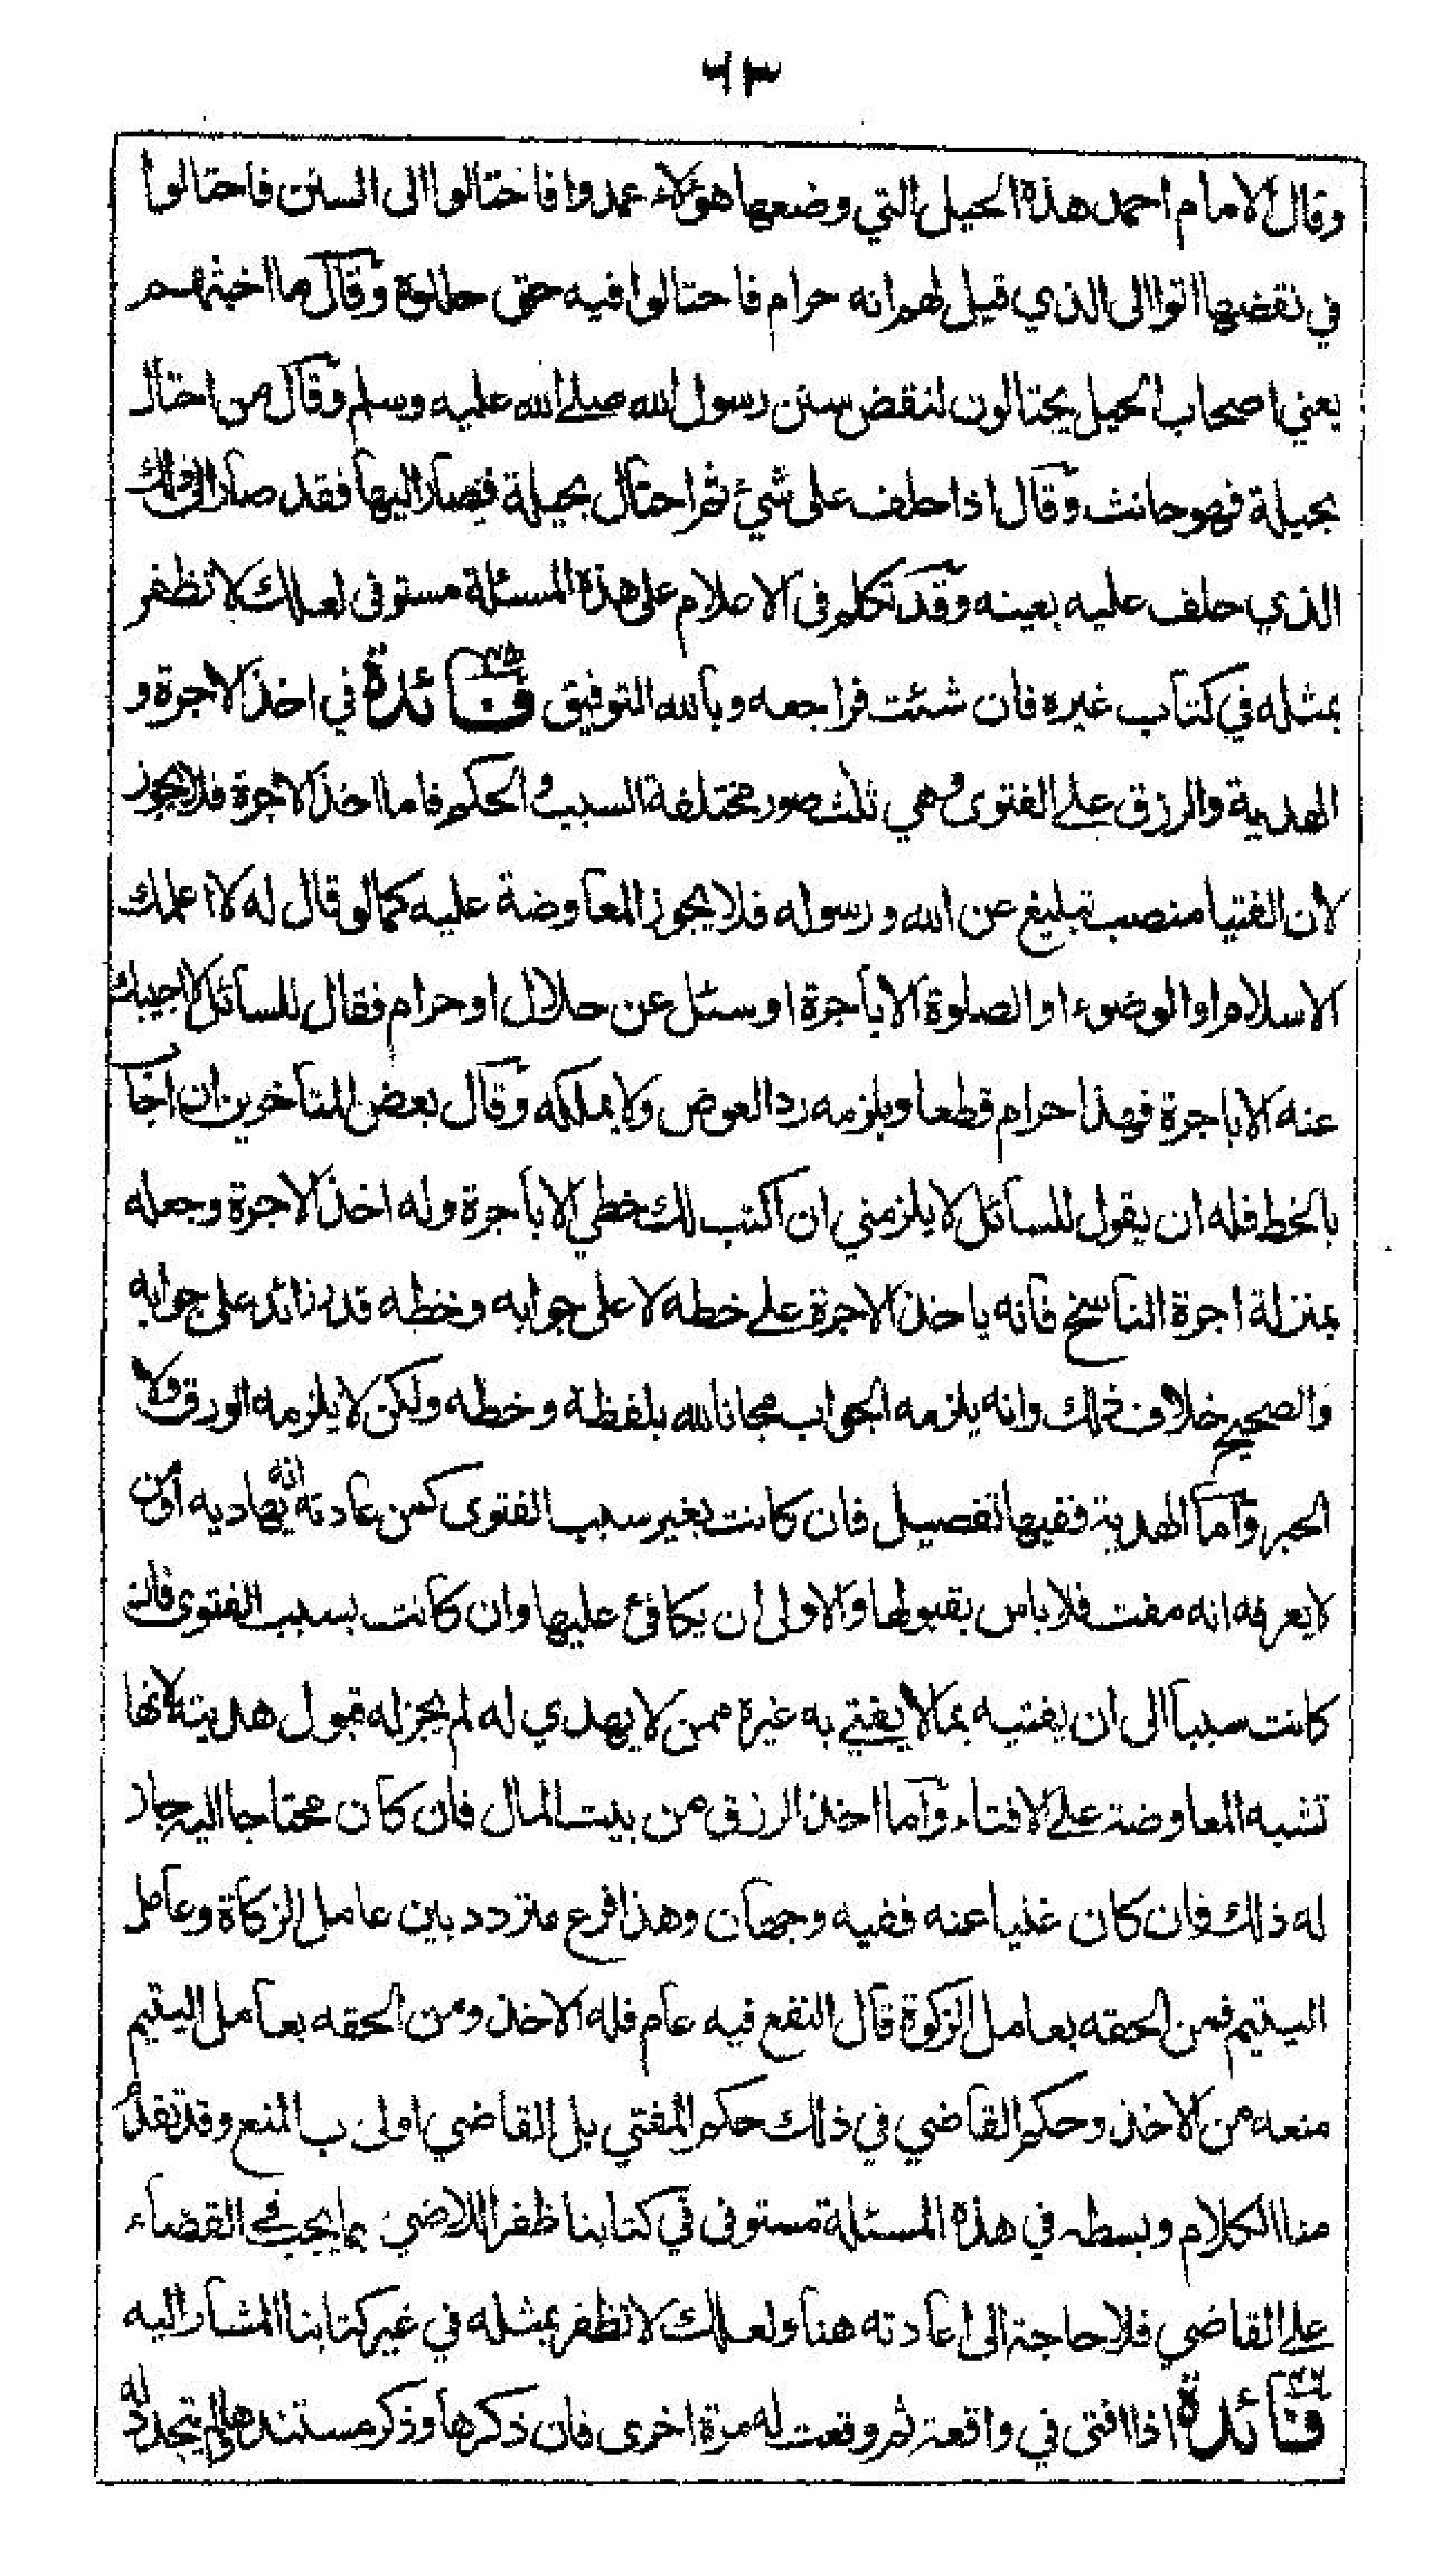 ٦٣
وقال الامام احمد هذه الحيل التي وضعها هؤلاء عمدوا فاحتالوا الى السنن فاحتالوا
في نقضها اتوا الى الذي قيل لهم انه حرام فاحتالوا فيه حتى حللوه وقال ما اخبثهم
يعني اصحاب الحيل يحتالون لنقض سنن رسول الله صلى الله عليه وسلم وقال من احتال
بحيلة فهو حانث وقال اذا حلف على شيئ ثم احتال بحيلة فصار اليها فقد صار الى ذلك
الذي حلف عليه بعينه وقد تكلم فى الاعلام على هذه المسئلة مستوفى لعلك لا تظفر
بمثله في كتاب غيره فان شئت فراجعه وبالله التوفيق فائدة في اخذ الاجرة و
الهدية والرزق على الفتوى وهي ثلث صور مختلفة السبب والحكم فاما اخذ الاجرة فلا يجوز
لان الفتيا منصب تبليغ عن الله ورسوله فلا يجوز المعاوضة عليه كما لو قال له لا اعلمك
الاسلام او الوضوء او الصلوة الا باجرة او سئل عن حلال او حرام فقال للسائل لا اجيبك
عنه الا باجرة فهذا حرام قطعا ويلزمه رد العوض ولا يملكه وقال بعض المتاخرين ان اجا
بالخط فله ان يقول للسائل لا يلزمني ان اكتب لك خطي الا باجرة وله اخذ الاجرة وجعله
بمنزلة اجرة الناسخ فانه ياخذ الاجرة على خطه لا على جوابه وخطه قدر زائد على جوابه
والصحيح خلاف ذلك وانه يلزمه الجواب مجانا لله بلفظه وخطه ولكن لا يلزمه الورق ولا
الحبر واما الهدية ففيها تفصيل فان كانت بغير سبب الفتوى كمن عادته انه يهاديه او من
لا يعرفه انه مفت فلا باس بقبولها والاولى ان يكافئ عليها وان كانت بسبب الفتوى فان
كانت سببا الى ان يفتيه بما لا يفتي به غيره ممن لا يهدي له لم يجز له قبول هديته لانها
تشبه المعاوضة على الافتاء واما اخذ الرزق من بيت المال فان كان محتاجا اليه جاز
له ذلك وان كان غنيا عنه ففيه وجهان وهذا فرع متردد بين عامل الزكاة وعامل
اليتيم فمن الحقه بعامل الزكوة قال النفع فيه عام فله الاخذ ومن الحقه بعامل اليتيم
منعه من الاخذ وحكم القاضي في ذلك حكم المفتي بل القاضي اولى بالمنع وقد تقدم
منا الكلام وبسطه في هذه المسئلة مستوفى في كتابنا ظفر اللاضي بما يجب في القضاء
على القاضي فلا حاجة الى اعادته هنا ولعلك لا تظفر بمثله في غير كتابنا المشار اليه
فائدة اذا افتى في واقعة ثم وقعت له مرة اخرى فان ذكرها وذكر مستندها ولم يتجدد له